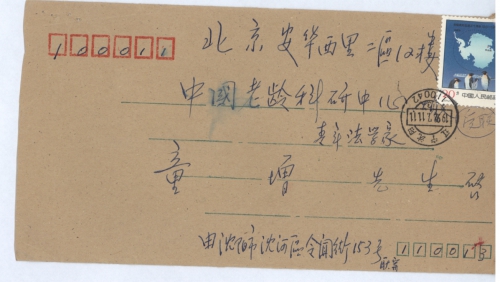 100011
北京安华西里二区12楼
20分 中国人民邮政
中国老龄科研中心
110042
青年法学家
童增先生 启
由沈阳市沈河区令闻街153号